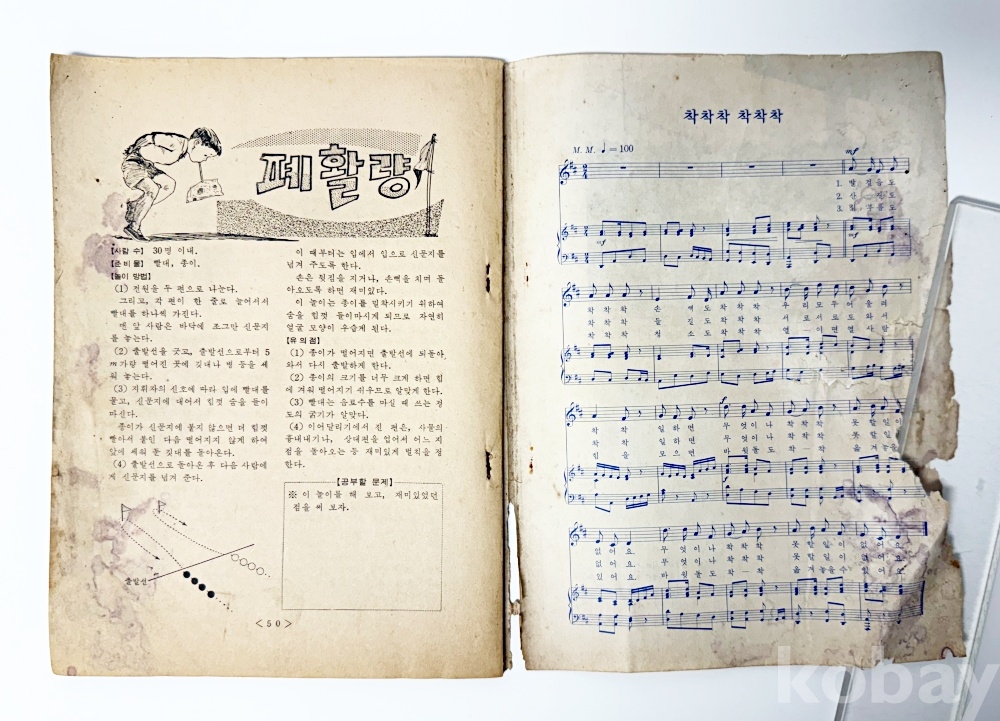 폐활량
【사람 수】 30명 이내.
【준비물】 빨대, 종이.
【놀이 방법】
(1) 전원을 두 편으로 나눈다.
그리고, 각 편이 한 줄로 늘어서서
빨대를 하나씩 가진다.
맨 앞 사람은 바닥에 조그만 신문지
를 놓는다.
(2) 출발선을 긋고, 출발선으로부터 5
m가량 떨어진 곳에 깃대나 병 등을 세
워 놓는다.
(3) 지휘자의 신호에 따라 입에 빨대를
물고, 신문지에 대어서 힘껏 숨을 들이
마신다.
종이가 신문지에 붙지 않으면 더 힘껏
빨아서 붙인 다음 떨어지지 않게 하여
앞에 세워 둔 깃대를 돌아온다.
(4) 출발선으로 돌아온 후 다음 사람에
게 신문지를 넘겨 준다.
출발선
이 때부터는 입에서 입으로 신문지를
넘겨 주도록 한다.
손은 뒷짐을 지거나, 손뼉을 치며 돌
아오도록 하면 재미있다.
이 놀이는 종이를 밀착시키기 위하여
숨을 힘껏 들이마시게 되므로 자연히
얼굴 모양이 우습게 된다.
【유의점】
(1) 종이가 떨어지면 출발선에 되돌아
와서 다시 출발하게 한다.
(2) 종이의 크기를 너무 크게 하면 힘
에 겨워 떨어지기 쉬우므로 알맞게 한다.
(3) 빨대는 음료수를 마실 때 쓰는 정
도의 굵기가 알맞다.
(4) 이어달리기에서 진 편은, 사물의
흉내내기나, 상대편을 업어서 어느 지
점을 돌아오는 등 재미있게 벌칙을 정
한다.
【공부할 문제】
※ 이 놀이를 해 보고, 재미있었던
점을 써 보자.
<50>
착착착 착착착
M. M. ♩=100
mf
1. 발걸음도
2. 산
3. 힘
mf
mf
착착착 손뼉도 착착착 우리모두어울려
착착착 둘 도 착착착 서로서로도와서
착착착 청소도 착착착 열이면열사람
f
착착 일하면 무엇이나 착착착 못할일이
착착 일하면 무엇이나 착착착 못할일이
힘을 모으면 바윗돌도 착착착 옮겨놓을
f
없어요. 무엇이나 착착착 못할일이 없어요.
없어요. 무엇이나 착착착 못할일이 없어요.
있어요. 바윗돌도 착착착 옮겨놓을수 있어요.
kobay